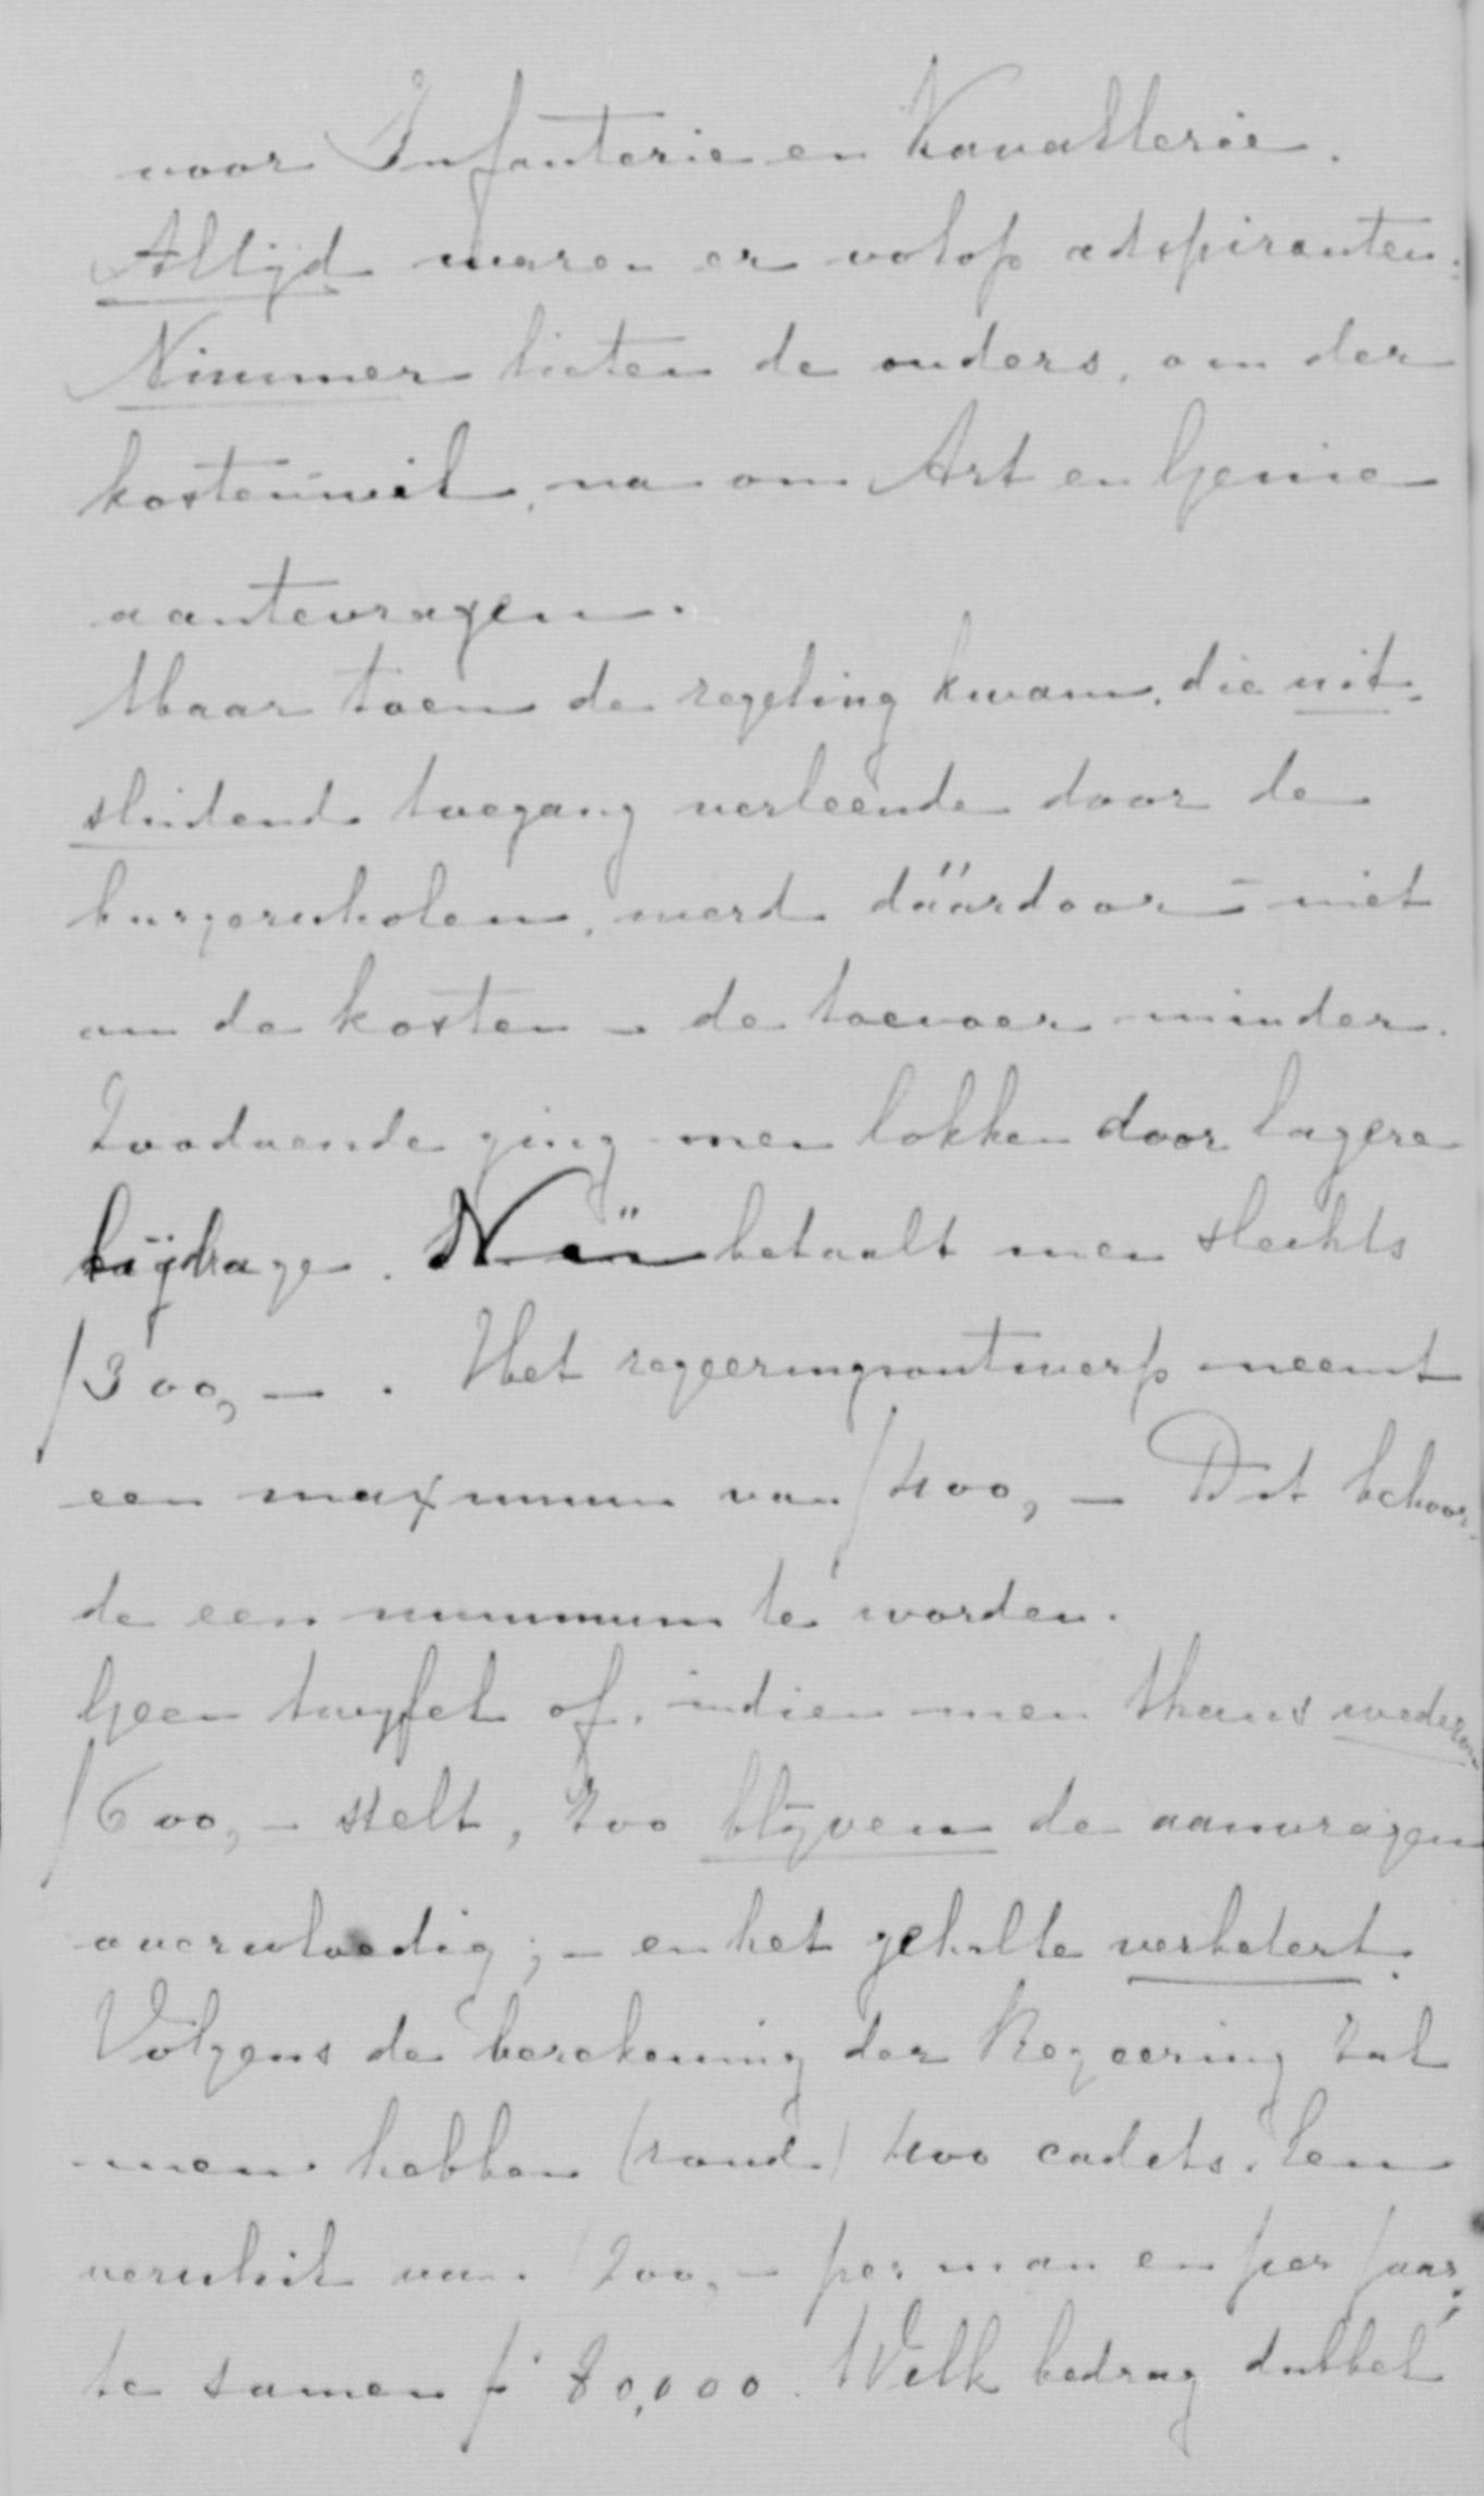 voor Infanterie en Kavallerie.
Altijd waren er volop adspiranten.
Nimmer lieten de ouders, om der
kosten wil, na om Art en Genie
aantevragen.
Maar toen de regeling kwam, die uit-
sluitend toegang verleende door de
burgerscholen, werd däárdoor – niet
om de kosten – de toevoer minder.
Zoodoende ging men lokken door lagere
bijdrage. Nü betaalt men slechts
f 300,– . Het regeeringsontwerp neemt
een maximum van f 400,– Dit behoor-
de een minimum te worden.
Geen twijfel of, indien men thans wederom
f 600,– stelt, zoo blijven de aanvragen
overvloedig; – en het gehalte verbetert.
Volgens de berekening der Regeering zal
men hebben (rond) 400 cadets. Een
verschil van 200,– per man en per jaar;
te samen f 80,000. Welk bedrag dubbel